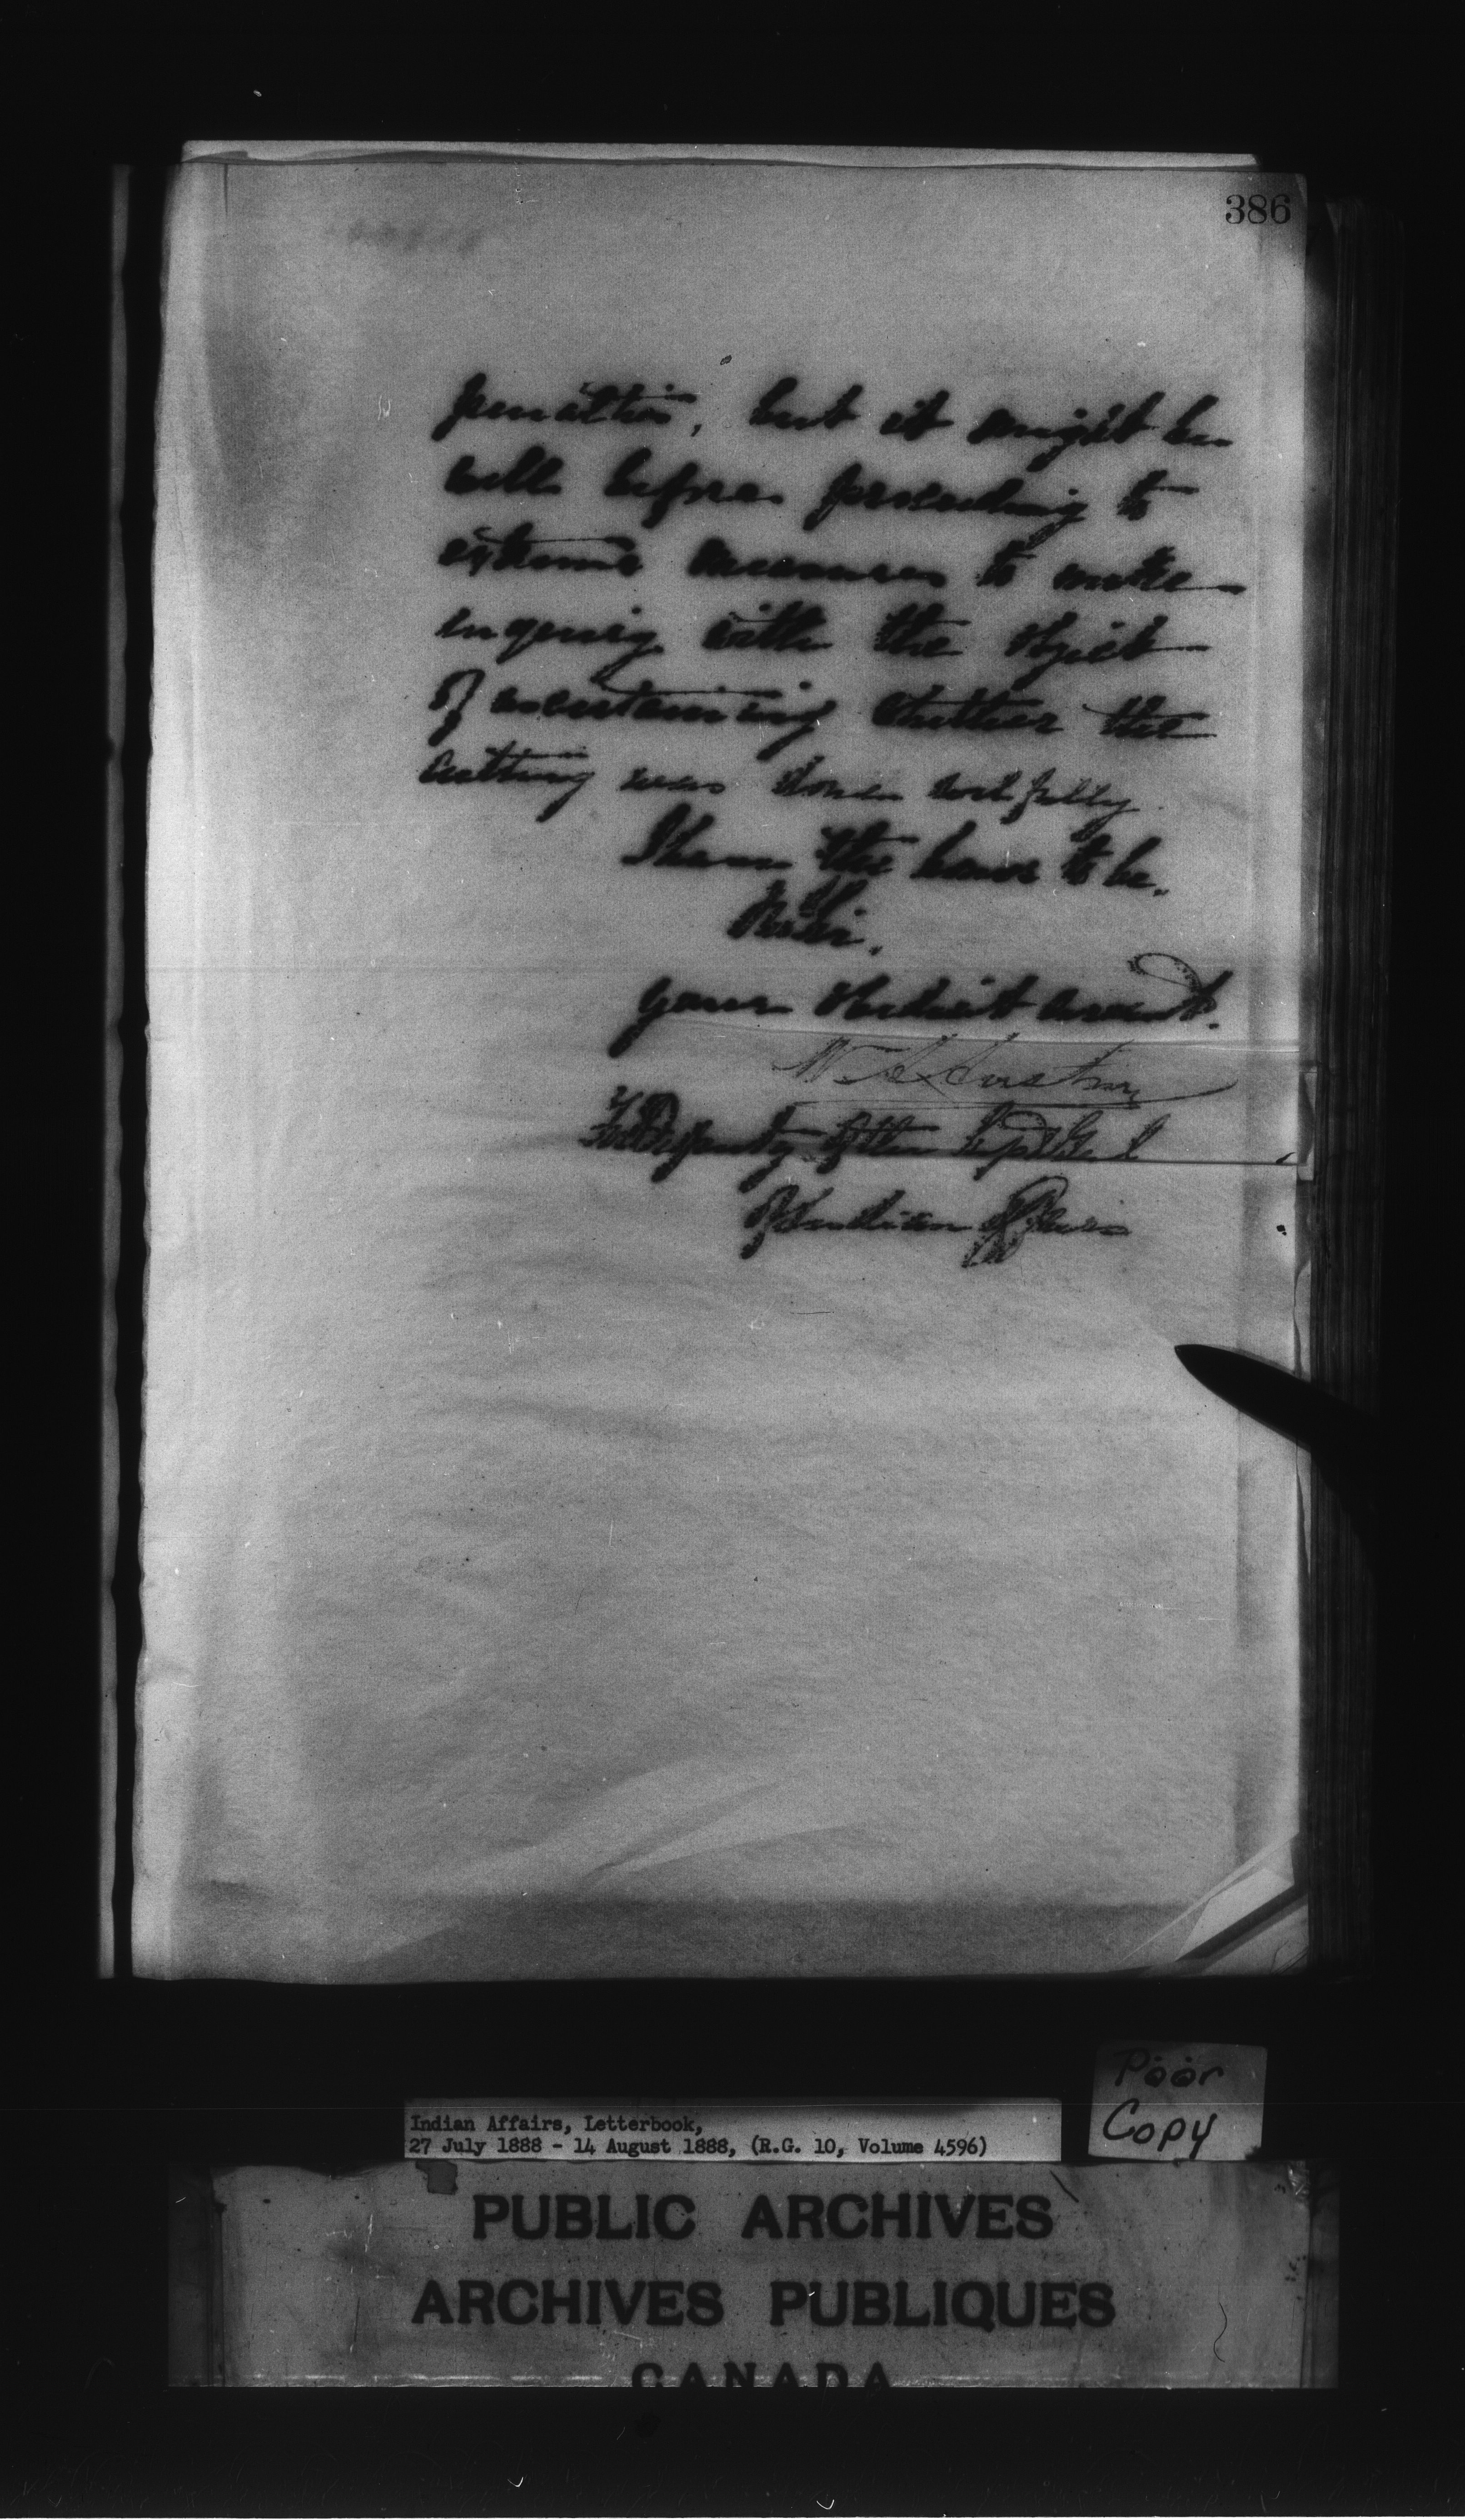 386
penalties, but it might be
well before proceeding to
extreme measures to make
enquiry with the object
of ascertaining whether the
cutting was done wilfully.
I have the honor to be,
Sir,
Your obedient servant.
W. A. Austin
Deputy of the Supt. Genl
of Indian Affairs
Poor
Copy
Indian Affairs, Letterbook,
27 July 1888 - 14 August 1888, (R.G. 10, Volume 4596)
PUBLIC ARCHIVES
ARCHIVES PUBLIQUES
CANADA